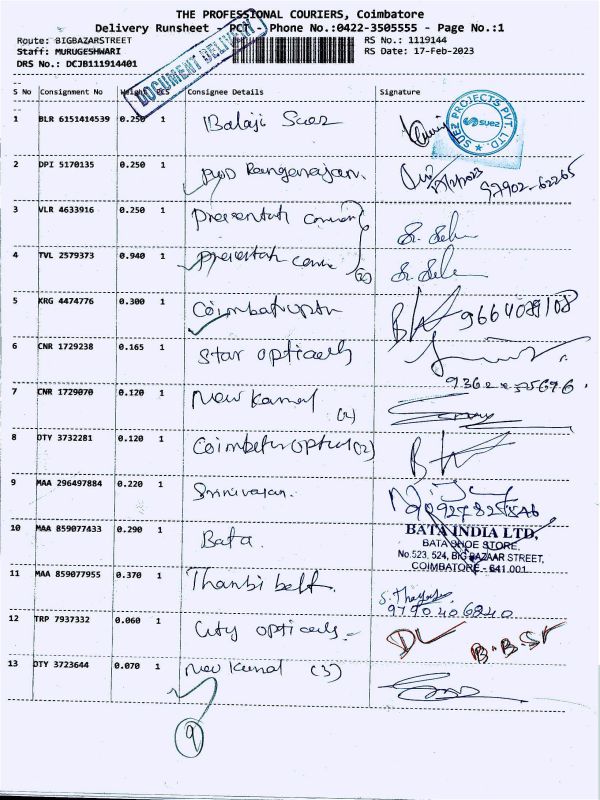 THE PROFESSIONAL COURIERS, Coimbatore
Delivery Runsheet - PCT - Phone No.:0422-3505555 - Page No.:1
Route: BIGBAZARSTREET RS No.: 1119144
Staff: MURUGESHWARI RS Date: 17-Feb-2023
DRS No.: DCJB111914401
DOCUMENT DELIVERY
S No Consignment No Weight PCS Consignee Details Signature
1 BLR 6151414539 0.250 1 Balaji Suez
SUEZ PROJECTS PVT. LTD. suez
2 DPI 5170135 0.250 1 Rangarajan.
3 VLR 4633916 0.250 1
4 TVL 2579373 0.940 1 (2)
5 KRG 4474776 0.300 1 9664089108
6 CNR 1729238 0.165 1 Star opticals
7 CNR 1729070 0.120 1 New Kamal
8 DTY 3732281 0.120 1 (2)
9 MAA 296497884 0.220 1 Srinivasan.
10 MAA 859077433 0.290 1 Bata.
BATA INDIA LTD.
BATA SHOE STORE,
No.523, 524, BIG BAZAAR STREET,
COIMBATORE - 641.001
11 MAA 859077955 0.370 1 Thambi belt.
9790406240
12 TRP 7937332 0.060 1 City opticals
B.B.St
13 DTY 3723644 0.070 1 New Kamal (3)
9